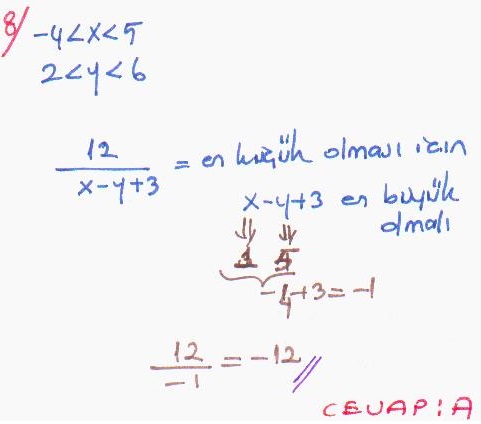 8/ -4<x<5
2<y<6
12/(x-y+3) = en küçük olması için
x-y+3 en büyük
olmalı
⇓ ⇓
1 5
-4+3=-1
12/-1 = -12 //
CEVAP: A